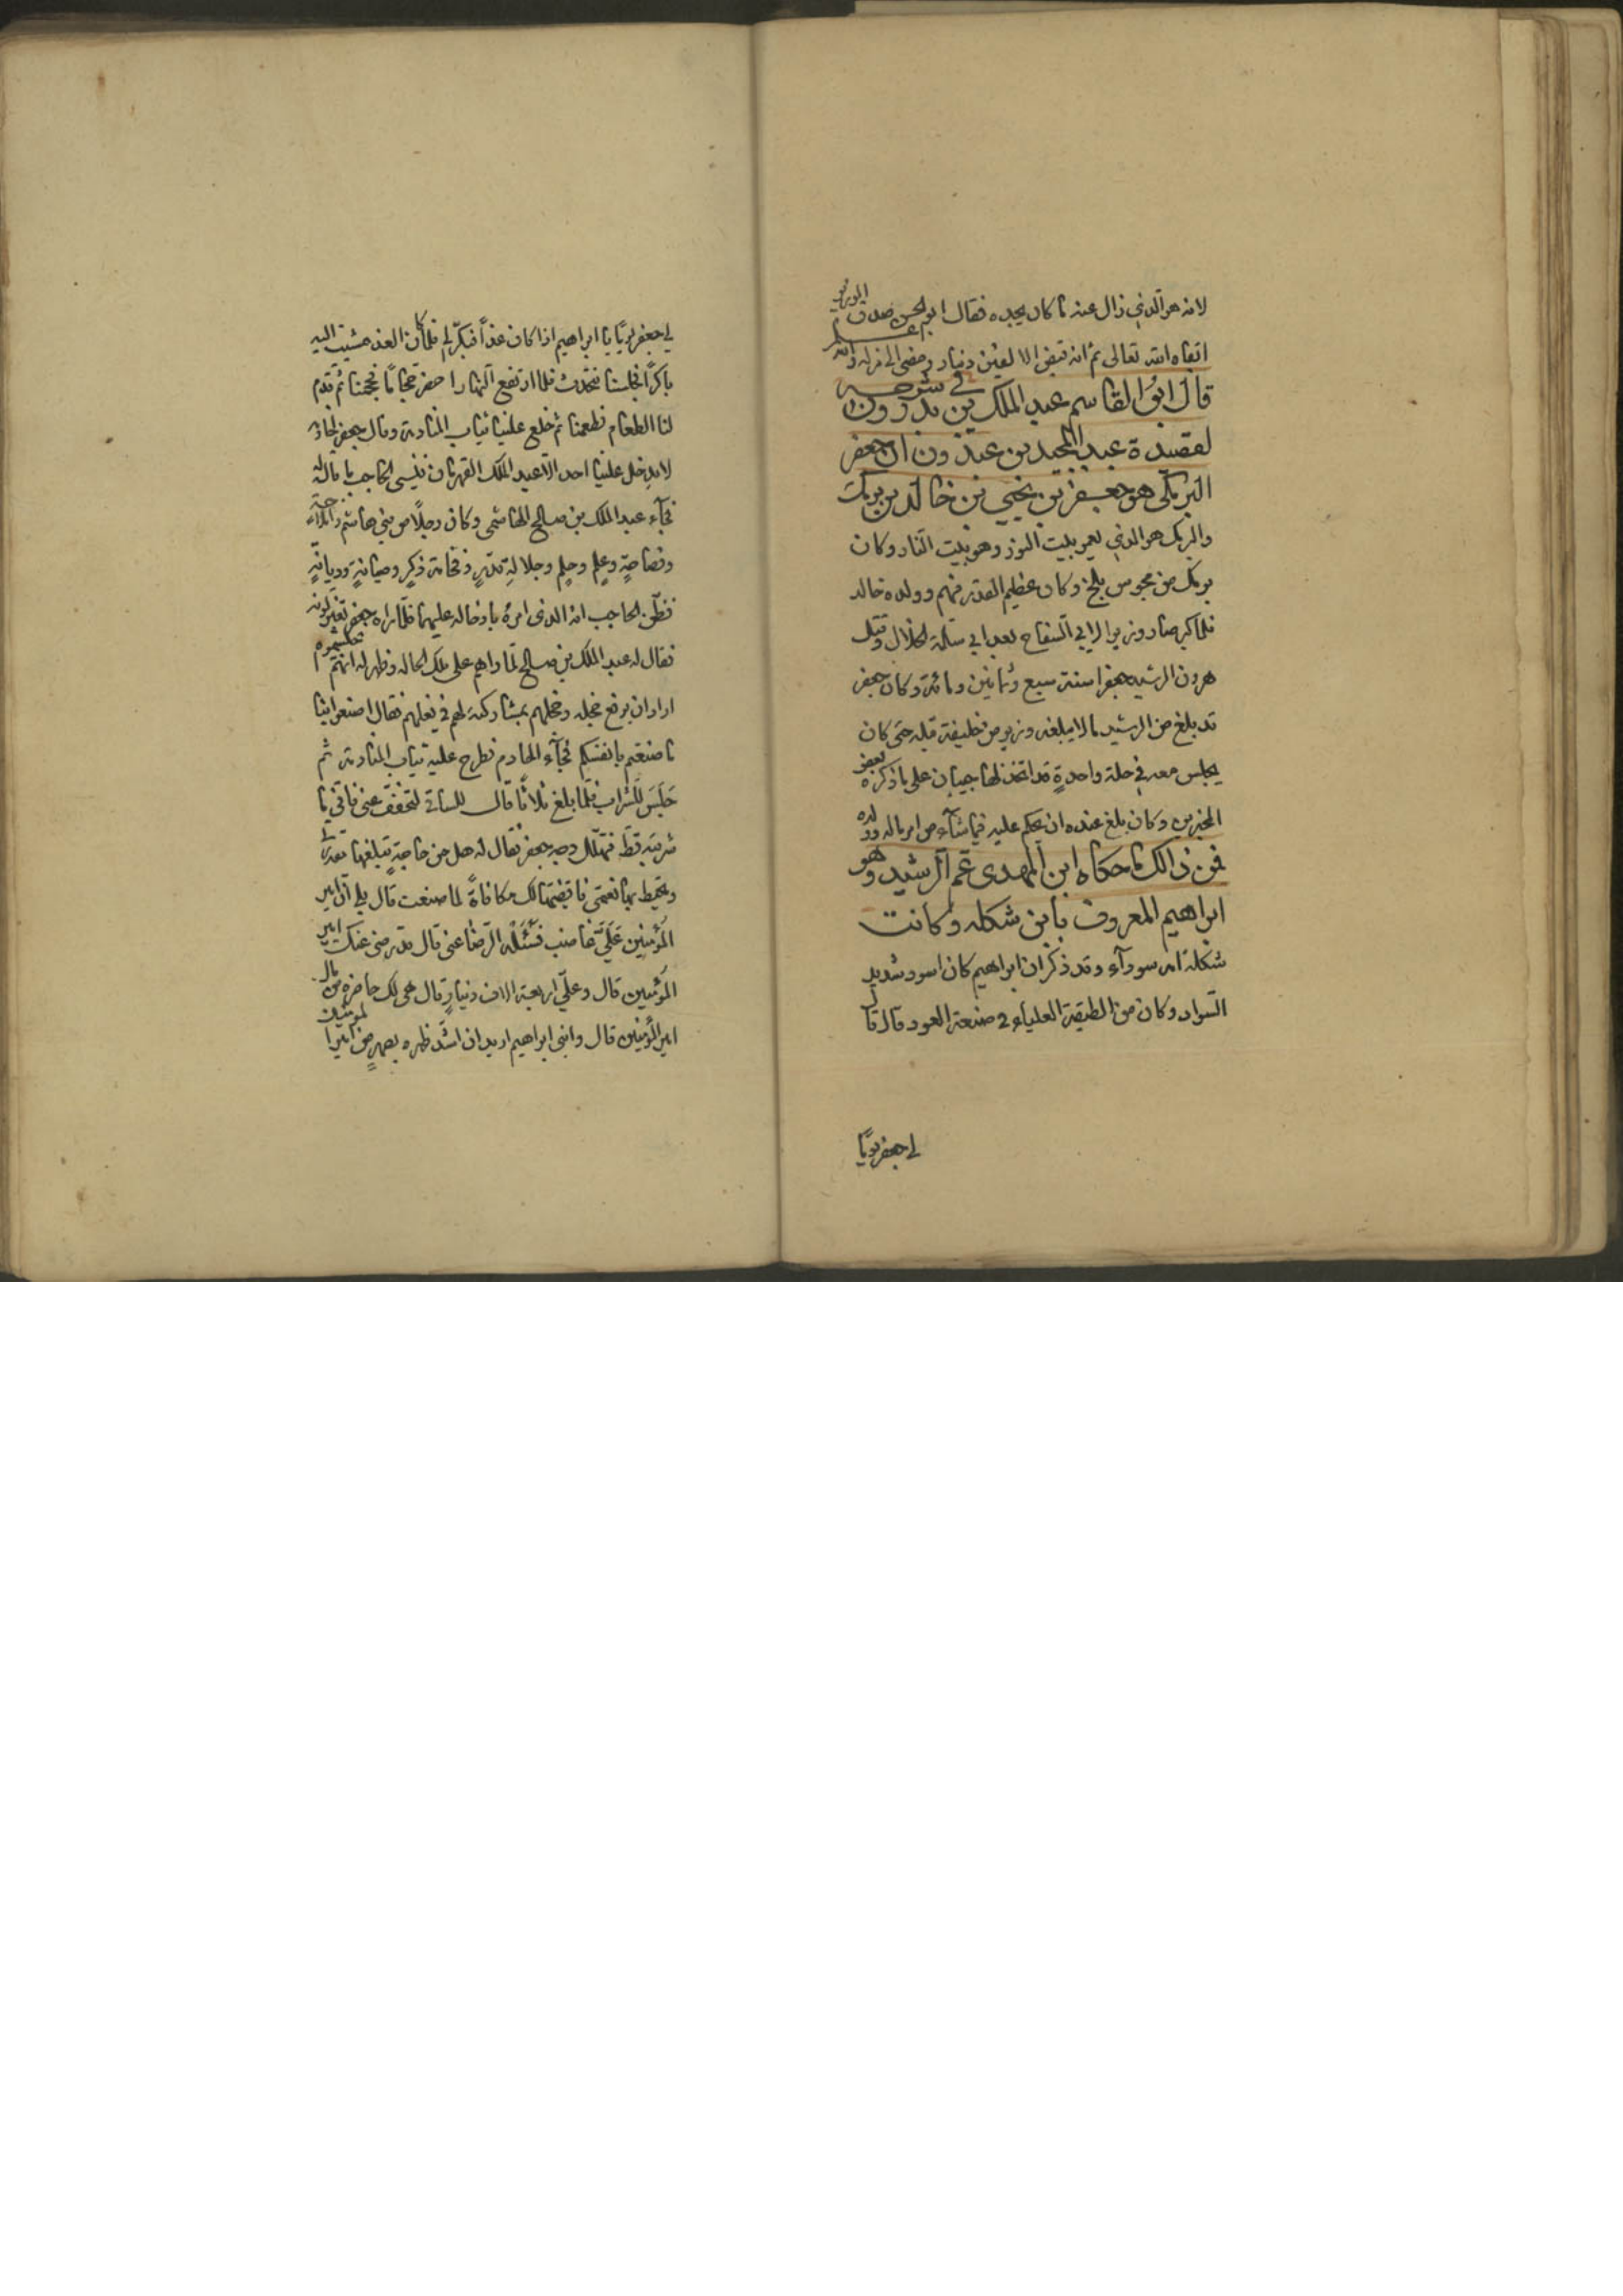 لانه هو الذي زال عنه ما كان يجده فقال ابو الحسن صدق الوزير
ابقاه الله تعالى ثم انه قبض الالفين دينار ومضى الى منزله والله اعلم
قال ابو القاسم عبد الملك بن بدرون في شرحه
لقصيدة عبد المجيد بن عبدون ان جعفر
البرمكي هو جعفر بن يحيي بن خالد بن برمك
والبرمك هو الذي يعمر بيت النوز وهو بيت النار وكان
برمك من مجوس بلخ وكان عظيم القدر فيهم وولده خالد
فلما كبر صار وزيرا لابي السفاح بعد ابي سلمة الخلال وقتل
هرون الرشيد جعفرا سنة سبع وثمانين ومائة وكان جعفر
قد بلغ من الرشيد ما لا يبلغه وزير من خليفة قبله حتى كان
يجلس معه في حلة واحدةٍ قد اتخذ لها جيبان على ما ذكره بعض
المخبرين وكان بلغ عنده ان يحكم عليه فيما شآء من امر ماله وولده
فمن ذالك ما حكاه ابن المهدى عم الرشيد وهو
ابراهيم المعروف بابن شكله وكانت
شكلة امه سودآء وقد ذكر ان ابراهيم كان اسود شديد
السواد وكان من الطبقة العلياء في صنعة العود قال قال
لي جعفر يومًا
لي جعفر يومًا يا ابراهيم اذا كان غدًا فبكّر لي فلما كان الغد مشيت اليه
باكرًا فجلسنا نتحدث فلما ارتفع النهار احضر حجامًا فحجمنا ثم قدم
لنا الطعام فطعمنا ثم خلع علينا ثياب المنادمة وقال جعفر لحاجبه
لا يدخل علينا احد الا عبد الملك القهرمان فنسى الحاجب ما قال له
فجآء عبد الملك بن صالح الهاشمى وكان رجلًا من بني هاشم ذا ملاحةٍ
وفصاحةٍ وعلمٍ وحلمٍ وجلالةِ قدرٍ وفخامة ذكرٍ وصيانةٍ وديانةٍ
فظن الحاجب انه الذى امره بادخاله عليهما فلما راه جعفر تغير لونه
فقال له عبد الملك بن صالح لما راهم على تلك الحاله وظهر له انهم احتشموه
اراد ان يرفع خجله وخجلهم بمشاركته لهم في فعلهم فقال اصنعوا بنا
ما صنعتم بانفسكم فجآء الخادم فطرح عليه ثياب المنادمة ثم
جلس للشراب فلما بلغ ثلاثًا قال للساقى لتخفف عنى فانى ما
شربته قط فتهلل وجه جعفر فقال له هل من حاجةٍ تبلغها مقدرتى
وتحيط بها نعمتى فاقضيها لك مكافاةً لما صنعت قال بلى ان امير
المؤمنين عَلَيَّ غاضب فسئله الرضا عنى قال قد رضى عنك امير
المؤمنين قال وعليّ اربعة الاف دينارٍ قال هى لك حاضره من مال
امير المؤمنين قال وابنى ابراهيم اريد ان اشد ظهره بصهرٍ من امير المؤمنين